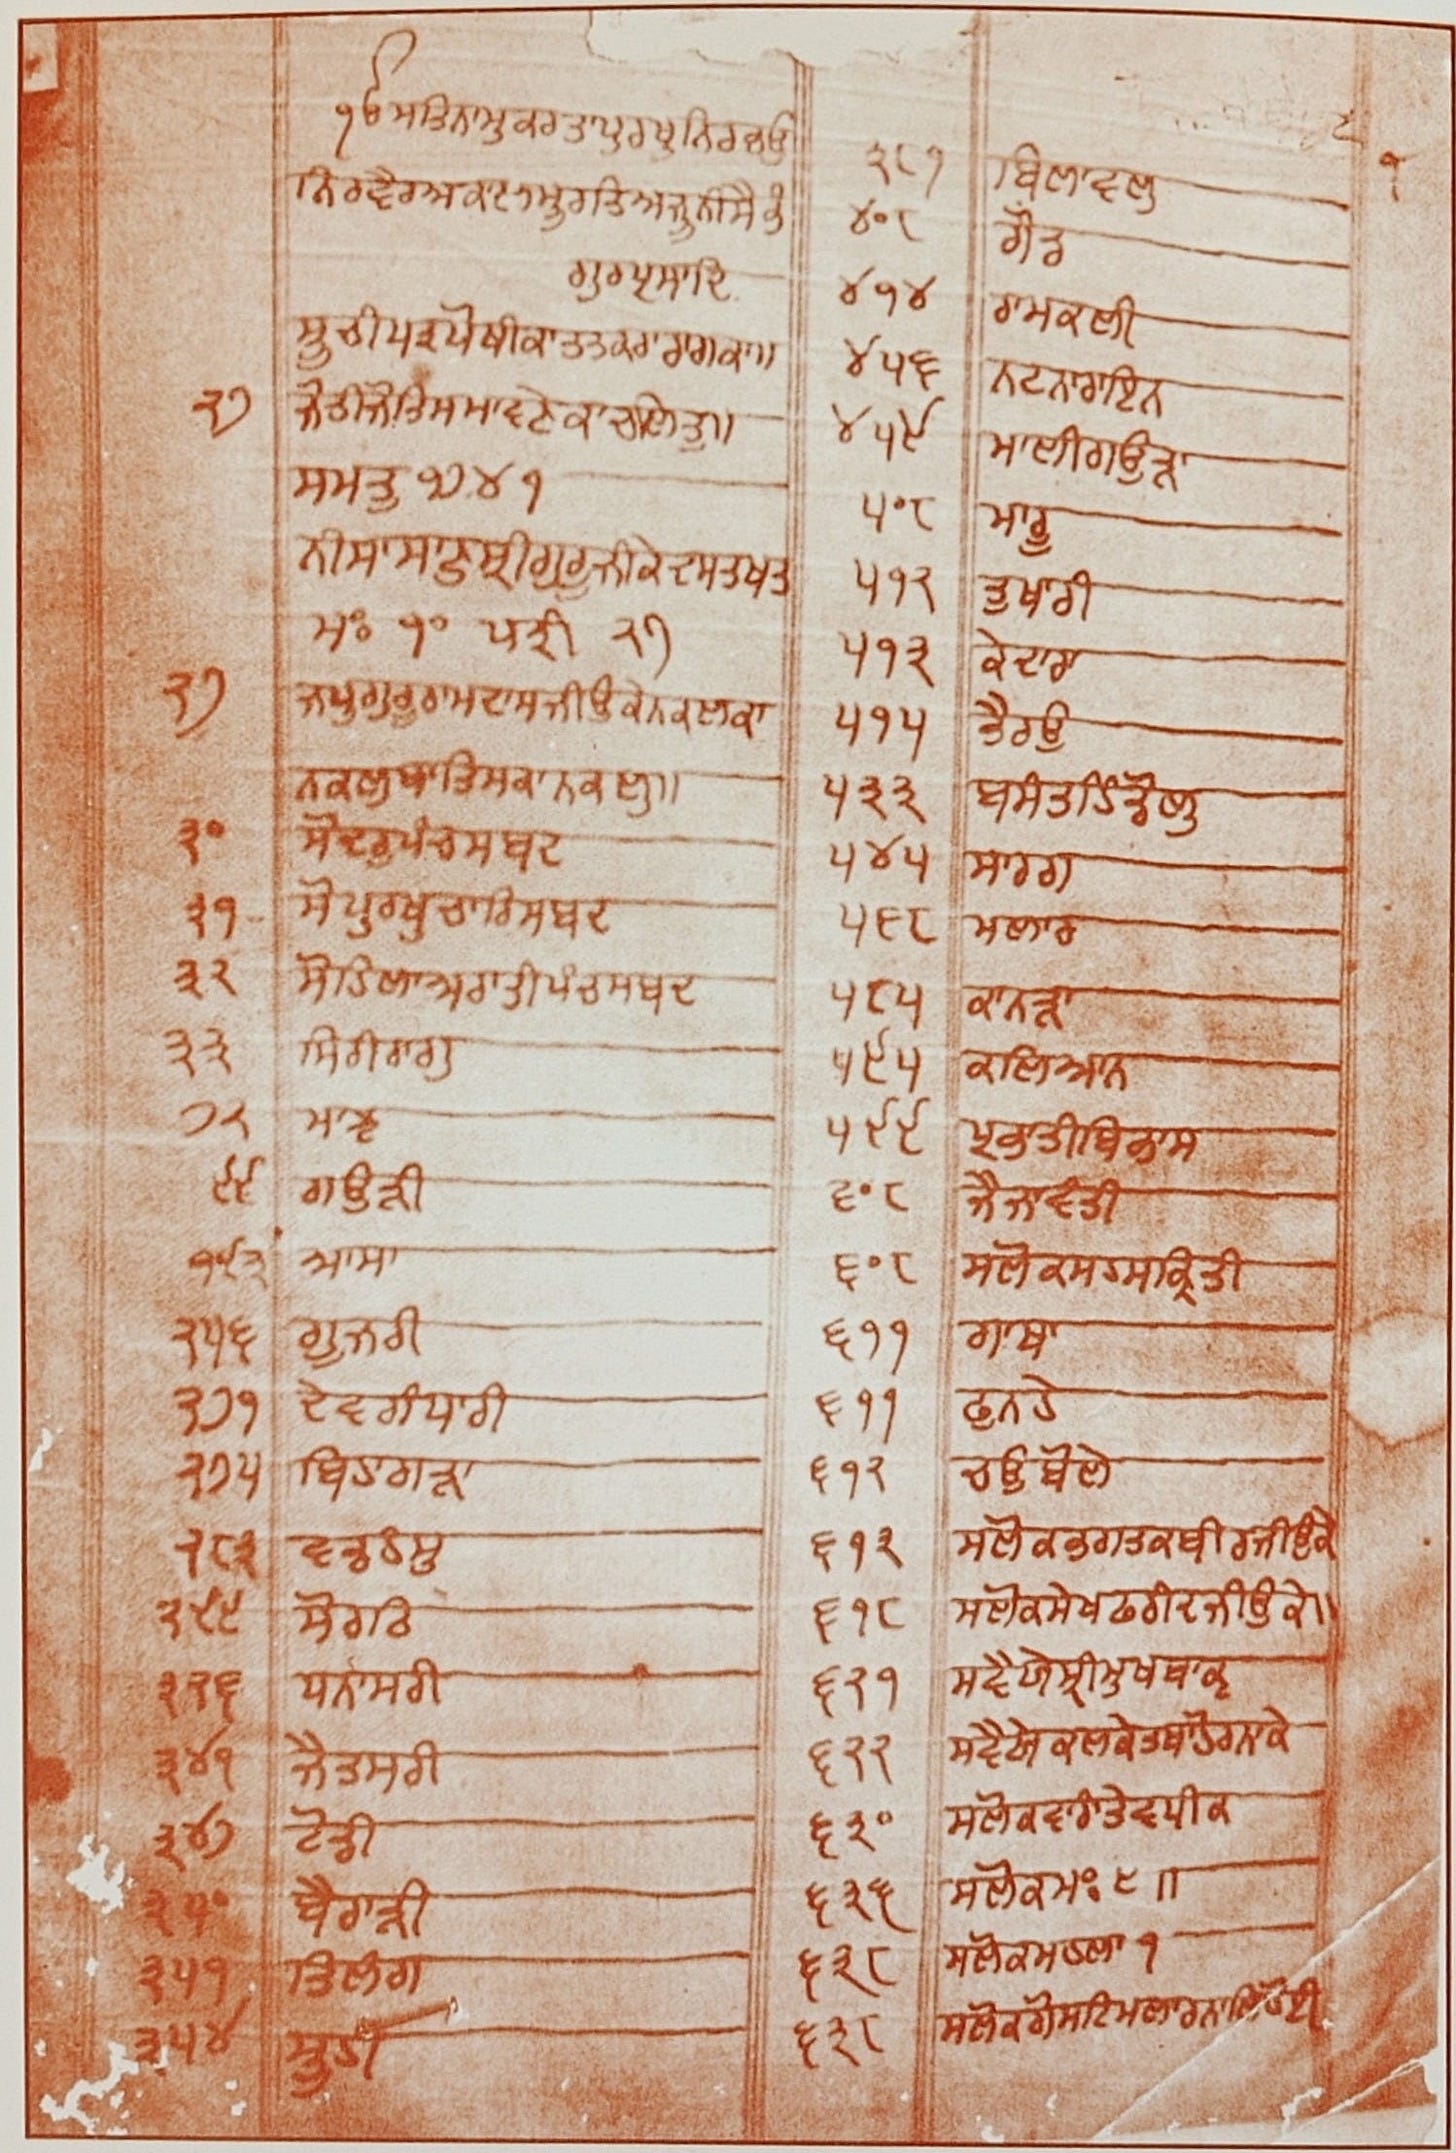 ੴ ਸਤਿਨਾਮੁ ਕਰਤਾ ਪੁਰਖੁ ਨਿਰਭਉ
ਨਿਰਵੈਰ ਅਕਾਲ ਮੂਰਤਿ ਅਜੂਨੀ ਸੈਭੰ
ਗੁਰਪ੍ਰਸਾਦਿ
ਸੂਚੀ ਪਤ੍ਰ ਪੋਥੀ ਕਾ ਤਤਕਰਾ ਰਾਗ ਕਾ॥
੨੭ ਜੋਤੀ ਜੋਤਿ ਸਮਾਵਣੇ ਕਾ ਚਲਿਤ੍ਰ॥
ਸਮਤੁ ੧੭੪੧
ਨੀਸਾਣੁ ਸ੍ਰੀ ਗੁਰੂ ਜੀ ਕੇ ਦਸਤਖਤ
ਮਃ ੧੦ ਪਤ੍ਰੀ ੨੭
੨੭ ਜਪੁ ਗੁਰੂ ਰਾਮਦਾਸ ਜੀਉ ਕੇ ਨਕਲ ਕਾ
ਨਕਲੁ ਥਾ ਤਿਸ ਕਾ ਨਕਲੁ॥
੩੦ ਸੋਦਰੁ ਪੰਚ ਸਬਦ
੩੧ ਸੋ ਪੁਰਖੁ ਚਾਰਿ ਸਬਦ
੩੨ ਸੋਹਿਲਾ ਅਰਾਤੀ ਪੰਚ ਸਬਦ
੩੩ ਸਿਰੀ ਰਾਗੁ
੭੨ ਮਾਝ
੯੯ ਗਉੜੀ
੧੯੩ ਆਸਾ
੨੫੬ ਗੁਜਰੀ
੨੭੧ ਦੇਵਗੰਧਾਰੀ
੨੭੫ ਬਿਹਾਗੜਾ
੨੮੩ ਵਡਹੰਸੁ
੨੯੯ ਸੋਰਠਿ
੩੨੬ ਧਨਾਸਰੀ
੩੪੧ ਜੈਤਸਰੀ
੩੪੭ ਟੋਡੀ
੩੫੦ ਬੈਰਾੜੀ
੩੫੧ ਤਿਲੰਗ
੩੫੪ ਸੂਹੀ
੧
੩੮੧ ਬਿਲਾਵਲੁ
੪੦੮ ਗੌਂਡ
੪੧੪ ਰਾਮਕਲੀ
੪੫੬ ਨਟ ਨਾਰਾਇਨ
੪੫੯ ਮਾਲੀ ਗਉੜਾ
੫੦੮ ਮਾਰੂ
੫੧੨ ਤੁਖਾਰੀ
੫੧੩ ਕੇਦਾਰਾ
੫੧੫ ਭੈਰਉ
੫੩੩ ਬਸੰਤ ਹਿੰਡੋਲੁ
੫੪੫ ਸਾਰਗ
੫੬੮ ਮਲਾਰ
੫੮੫ ਕਾਨੜਾ
੫੯੫ ਕਲਿਆਨ
੫੯੯ ਪ੍ਰਭਾਤੀ ਬਿਭਾਸ
੬੦੮ ਜੈਜਾਵੰਤੀ
੬੦੮ ਸਲੋਕ ਸਹਸਕ੍ਰਿਤੀ
੬੧੧ ਗਾਥਾ
੬੧੧ ਫੁਨਹੇ
੬੧੨ ਚਉਬੋਲੇ
੬੧੩ ਸਲੋਕ ਭਗਤ ਕਬੀਰ ਜੀਉ ਕੇ
੬੧੮ ਸਲੋਕ ਸੇਖ ਫਰੀਦ ਜੀਉ ਕੇ॥
੬੨੧ ਸਵੈਯੇ ਸ੍ਰੀ ਮੁਖ ਬਾਕ੍ਯ
੬੨੨ ਸਵੈਯੇ ਕਲ ਕੇ ਤਥਾ ਹੋਰਨਾ ਕੇ
੬੩੦ ਸਲੋਕ ਵਾਰਾਂ ਤੇ ਵਧੀਕ
੬੩੬ ਸਲੋਕ ਮਃ ੯॥
੬੩੮ ਸਲੋਕ ਮਹਲਾ ੧
੬੩੮ ਸਲੋਕ ਗੋਸਟਿ ਮਲਾਰ ਨਾਲਿ ਹੋਈ